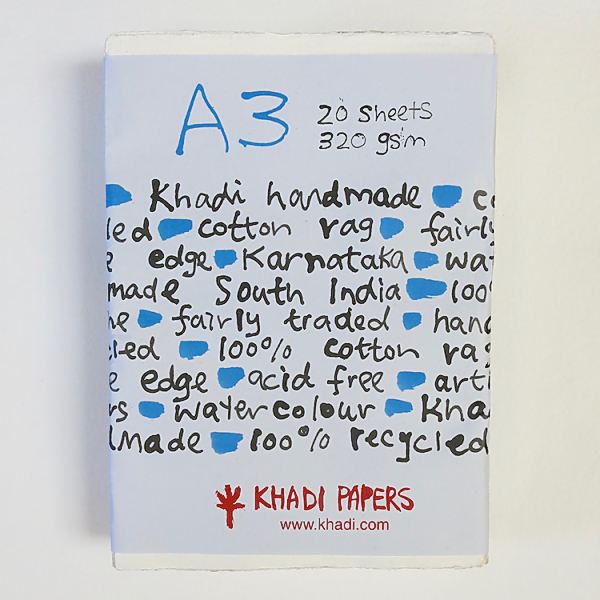 A3 20 sheets
320 gsm
Khadi handmade
cotton rag fairly
edge Karnataka
made South India 100%
fairly traded
100% cotton rag
edge acid free
watercolour
made 100% recycled
KHADI PAPERS
www.khadi.com